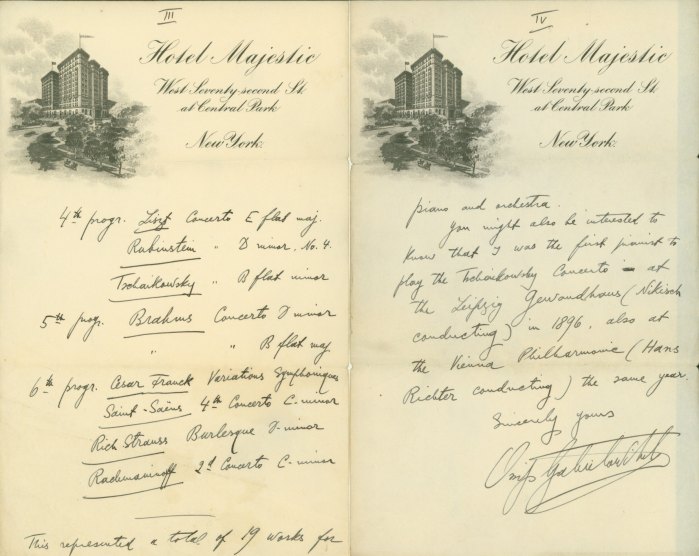 III
Hotel Majestic
West Seventy-second St.
at Central Park
New York.
4th progr. Liszt Concerto E flat maj.
Rubinstein " D minor, No. 4.
Tschaikowsky " B flat minor
5th progr. Brahms Concerto D minor
" " B flat maj.
6th progr. César Franck Variations Symphoniques
Saint-Saëns 4th Concerto C-minor
Rich Strauss Burlesque D-minor
Rachmaninoff 2d Concerto C-minor
This represented a total of 19 works for
IV
Hotel Majestic
West Seventy-second St.
at Central Park
New York.
piano and orchestra.
You might also be interested to
know that I was the first pianist to
play the Tschaikowsky Concerto at
the Leipzig Gewandhaus (Nikisch
conducting) in 1896, also at
the Vienna Philharmonic (Hans
Richter conducting) the same year
Sincerely yours
Ossip Gabrilowitsch